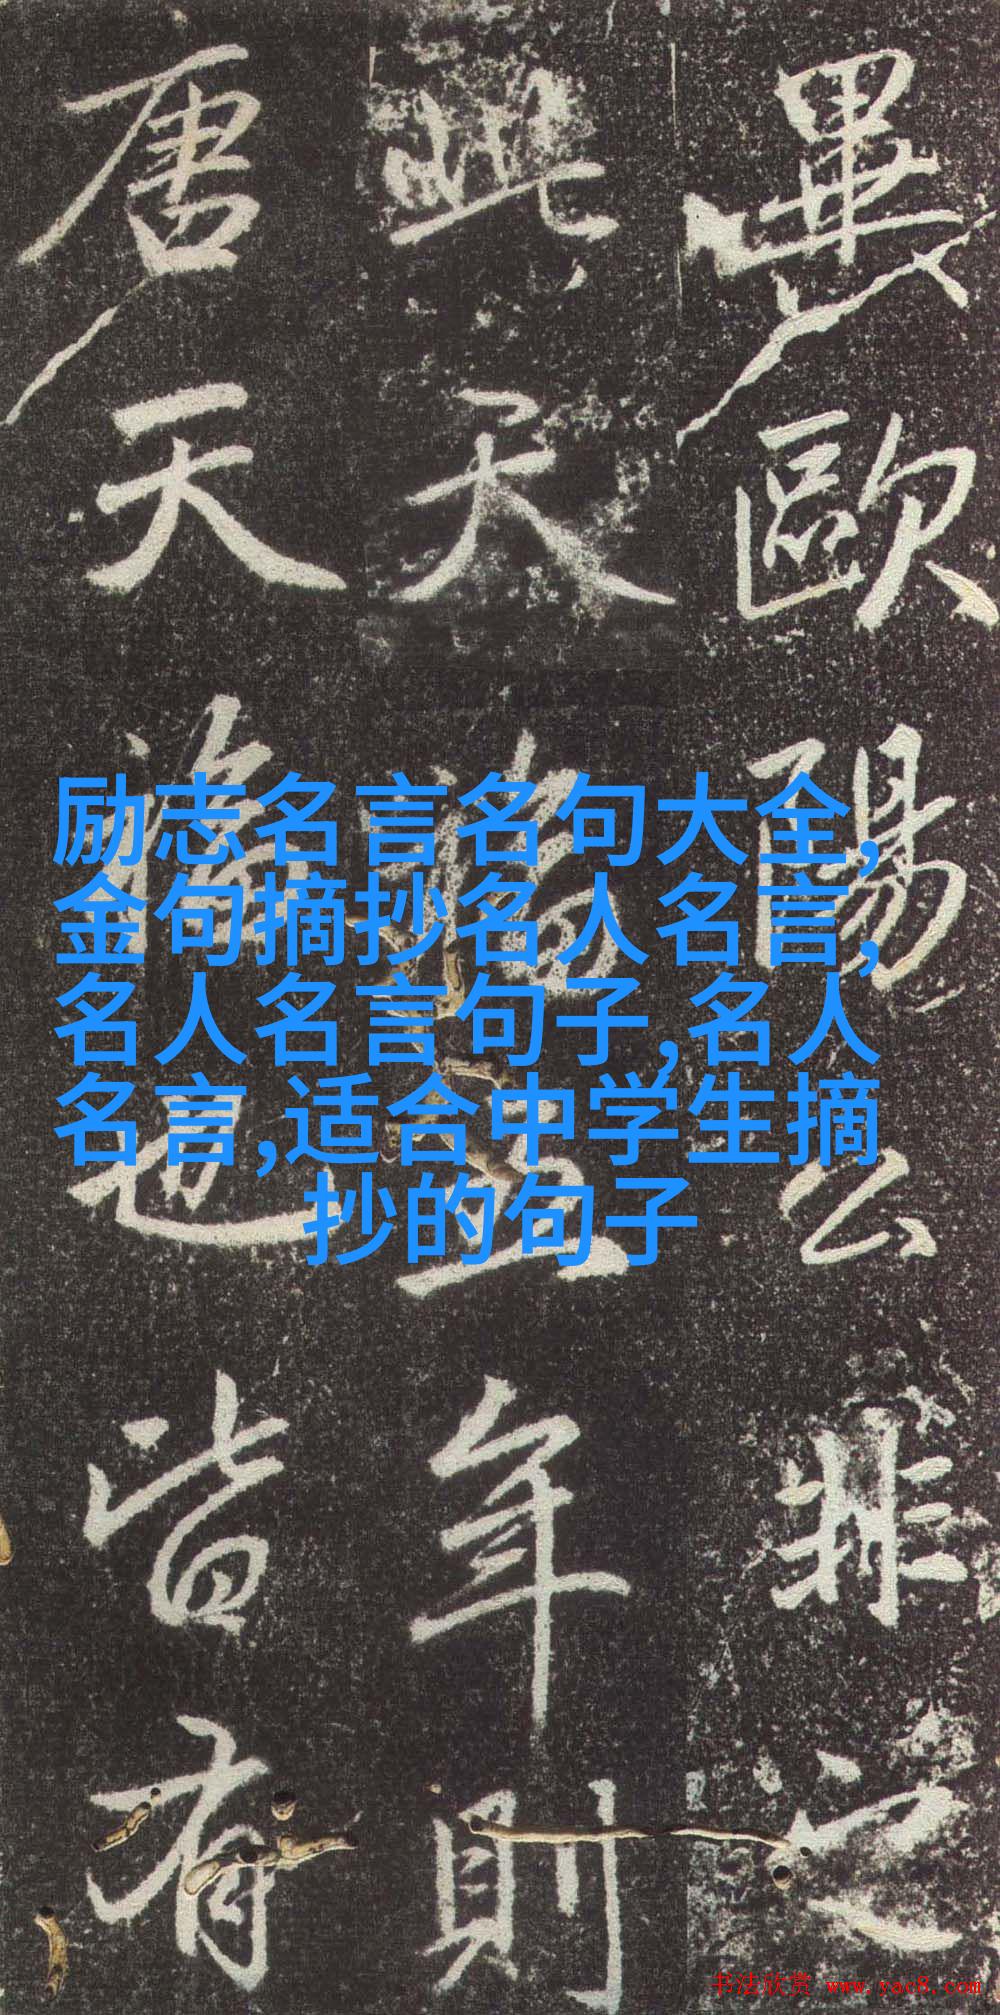 畢歐陽公非之
此天
年則
唐天
也皆有
励志名言名句大全,
金句摘抄名人名言,
名人名言句子,名人
名言,适合中学生摘
抄的句子
书法欣赏 www.yac8.com